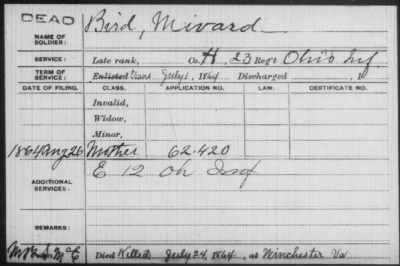 DEAD
NAME OF SOLDIER: Bird, Mivard
SERVICE: Late rank, Co. H, 23 Reg't Ohio Inf.
TERM OF SERVICE: Enlisted Trans July 1, 1864 Discharged , 18
DATE OF FILING. CLASS. APPLICATION NO. LAW. CERTIFICATE NO.
Invalid,
Widow,
Minor,
1864 Aug 26 Mother 62.420
ADDITIONAL SERVICES: E 12 Oh Inf
REMARKS:
Died Killed July 24, 1864, at Winchester Va